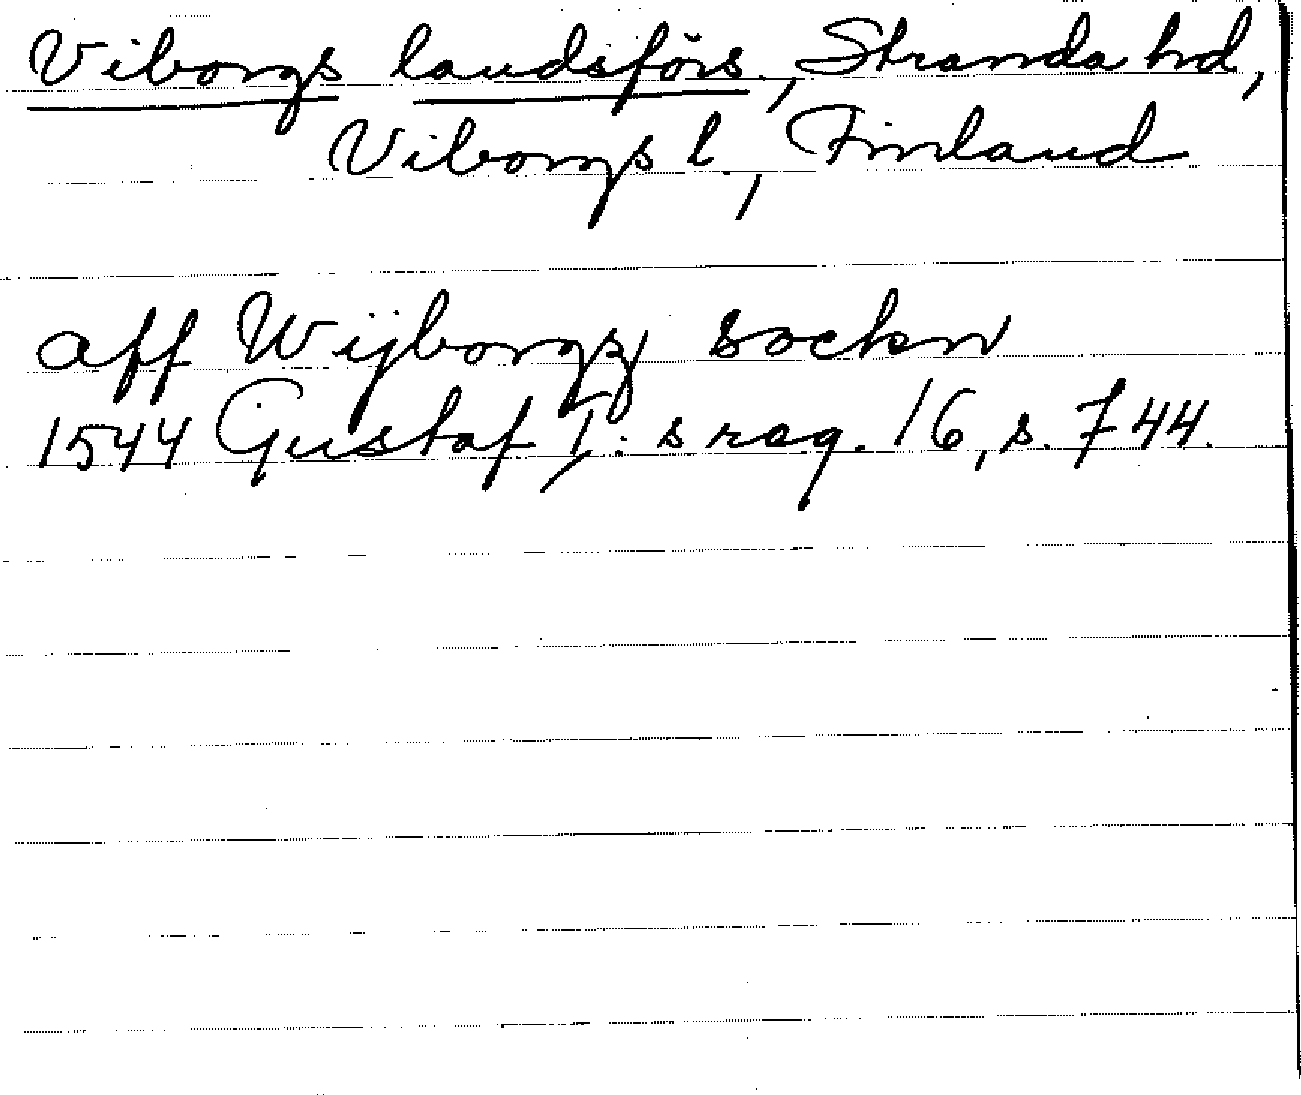 Viborgs landsförs., Stranda hd,
Viborgs l., Finland
aff Wijborgz sockn
1544 Gustaf I: s reg. 16, s. 744.